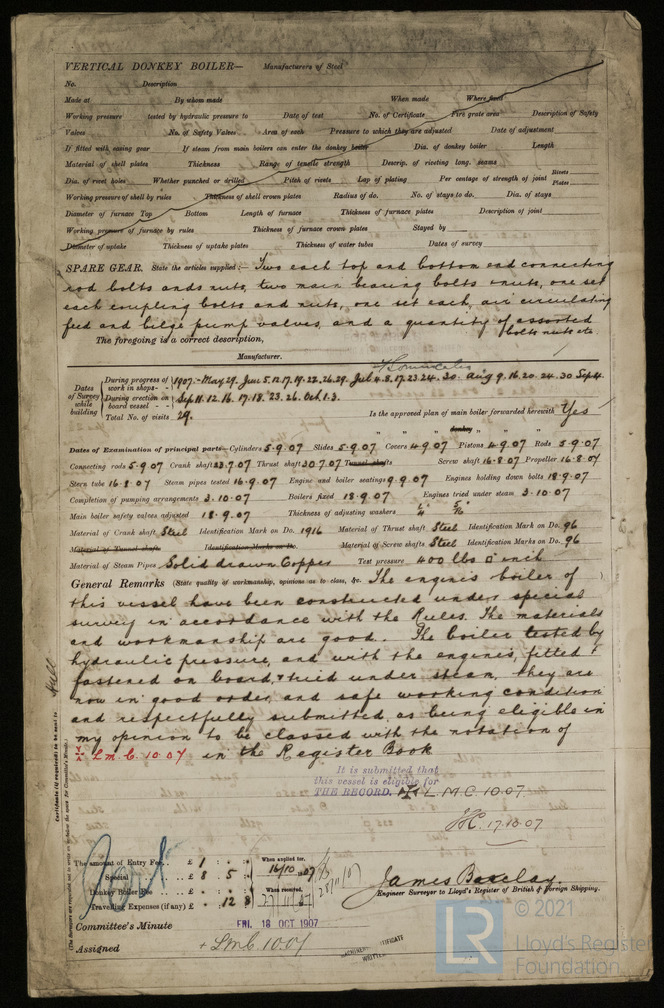 VERTICAL DONKEY BOILER— Manufacturers of Steel
No. Description
Made at By whom made When made Where fixed
Working pressure tested by hydraulic pressure to Date of test No. of Certificate Fire grate area Description of Safety
Valves No. of Safety Valves Area of each Pressure to which they are adjusted Date of adjustment
If fitted with easing gear If steam from main boilers can enter the donkey boiler Dia. of donkey boiler Length
Material of shell plates Thickness Range of tensile strength Descrip. of riveting long. seams
Dia. of rivet holes Whether punched or drilled Pitch of rivets Lap of plating Per centage of strength of joint Rivets Plates
Working pressure of shell by rules Thickness of shell crown plates Radius of do. No. of stays to do. Dia. of stays
Diameter of furnace Top Bottom Length of furnace Thickness of furnace plates Description of joint
Working pressure of furnace by rules Thickness of furnace crown plates Stayed by
Diameter of uptake Thickness of uptake plates Thickness of water tubes Dates of survey
SPARE GEAR. State the articles supplied:— Two each top and bottom end connecting
rod bolts and nuts, two main bearing bolts & nuts, one set
each coupling bolts and nuts, one set each, air circulating
feed and bilge pump valves, and a quantity of assorted
bolts nuts etc
The foregoing is a correct description,
Manufacturer.
Dates of Survey while building
During progress of work in shops - - 1907. - May 29. June 5.12.17.19.22.26.29. July 4.8.17.23.24.30. Aug 9.16.20.24.30 Sep 4.
During erection on board vessel - - Sep 11.12.16.17.18.23.26. Oct 1.3.
Total No. of visits 29.
Is the approved plan of main boiler forwarded herewith Yes
" " donkey " " "
Dates of Examination of principal parts—Cylinders 5.9.07 Slides 5.9.07 Covers 4.9.07 Pistons 4.9.07 Rods 5.9.07
Connecting rods 5.9.07 Crank shaft 23.7.07 Thrust shaft 30.7.07 Tunnel shafts Screw shaft 16.8.07 Propeller 16.8.07
Stern tube 16.8.07 Steam pipes tested 16.9.07 Engine and boiler seatings 9.9.07 Engines holding down bolts 18.9.07
Completion of pumping arrangements 3.10.07 Boilers fixed 18.9.07 Engines tried under steam 3.10.07
Main boiler safety valves adjusted 18.9.07 Thickness of adjusting washers
Material of Crank shaft Steel Identification Mark on Do. 1916 Material of Thrust shaft Steel Identification Mark on Do. 96
Material of Tunnel shafts Identification Marks on Do. Material of Screw shafts Steel Identification Marks on Do. 96
Material of Steam Pipes Solid drawn Copper Test pressure 400 lbs □ inch
General Remarks (State quality of workmanship, opinions as to class, &c. The engines boiler of
this vessel have been constructed under special
survey in accordance with the Rules. The materials
and workmanship are good. The boiler tested by
hydraulic pressure, and with the engines, fitted &
fastened on board, & tried under steam, they are
now in good order, and safe working condition
and respectfully submitted, as being eligible in
my opinion to be classed with the notation of
L.M.C. 10.07 in the Register Book
It is submitted that
this vessel is eligible for
THE RECORD. L M C 10.07
17.10.07
Certificate (if required) to be sent to Hull
(The Surveyors are requested not to write on or below the space for Committee's Minute.)
The amount of Entry Fee.. £ 1 : - : - When applied for,
Special £ 8 : 5 : 16/10 07
Donkey Boiler Fee £ : : When received,
Travelling Expenses (if any) £ - : 12 : 8
James Barclay.
Engineer Surveyor to Lloyd's Register of British & Foreign Shipping.
Committee's Minute FRI. 18 OCT 1907
Assigned + L.M.C. 10.07
MACHINERY CERTIFICATE
WRITTEN
LR
© 2021
Lloyd's Register
Foundation